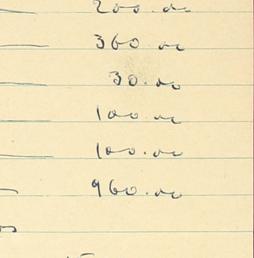 200.00
360.00
30.00
100.00
100.00
960.00